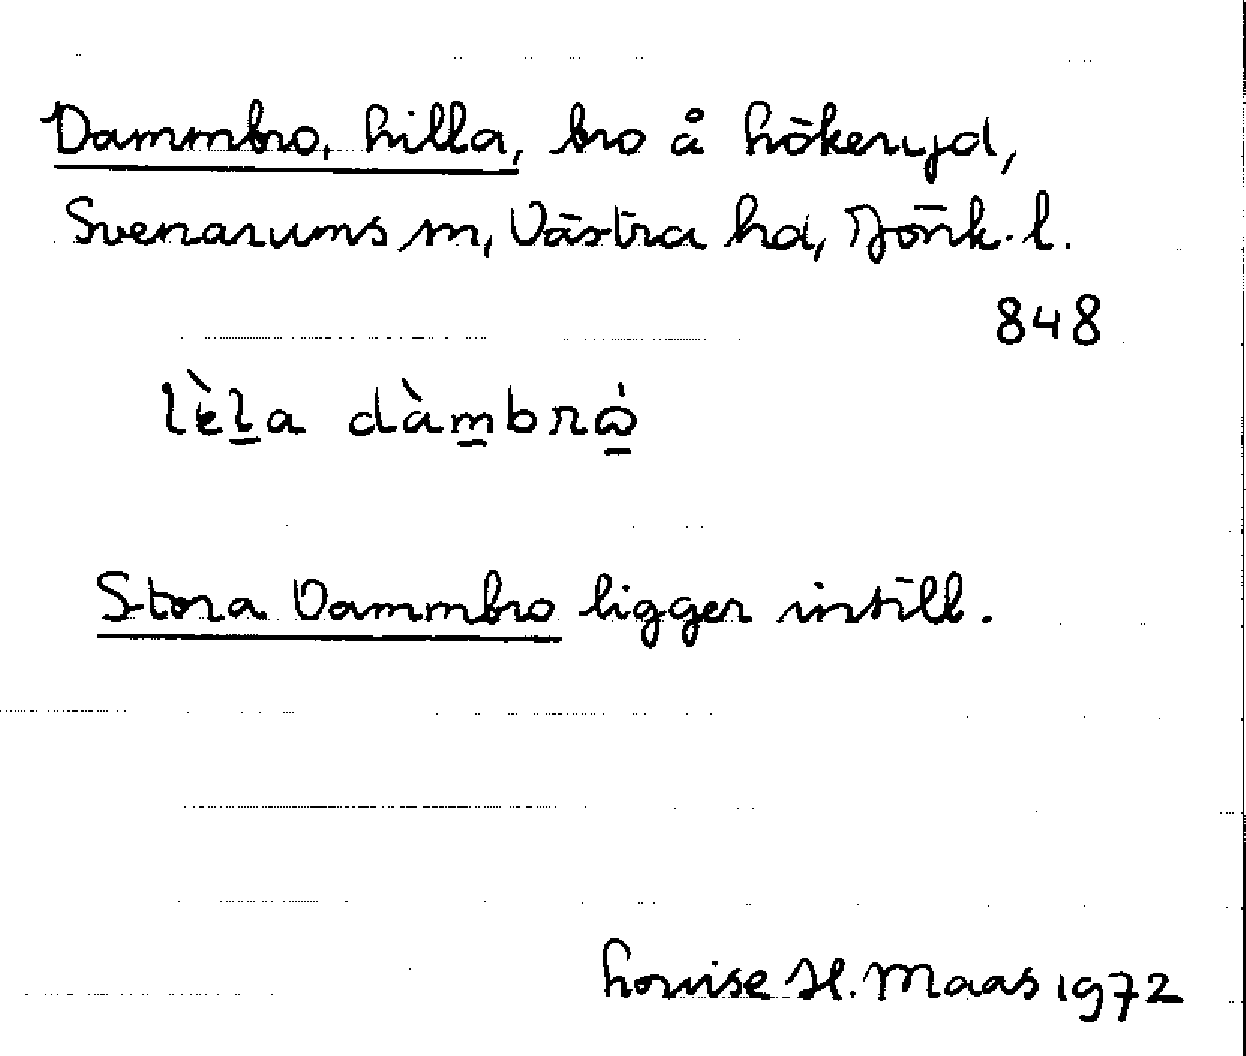 Dammbro, Lilla, bro å Lökeryd,
Svenarums sn, Västra hd, Jönk. l.
848
lèla dàmbrω̇
Stora Dammbro ligger intill.
Louise H. Maas 1972